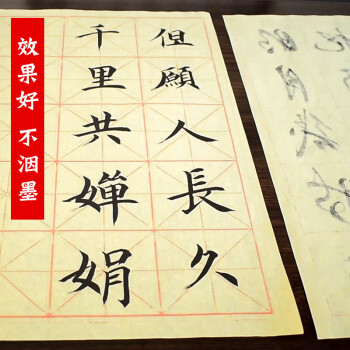 但願人長久
千里共嬋娟
效果好 不洇墨
明月幾
把